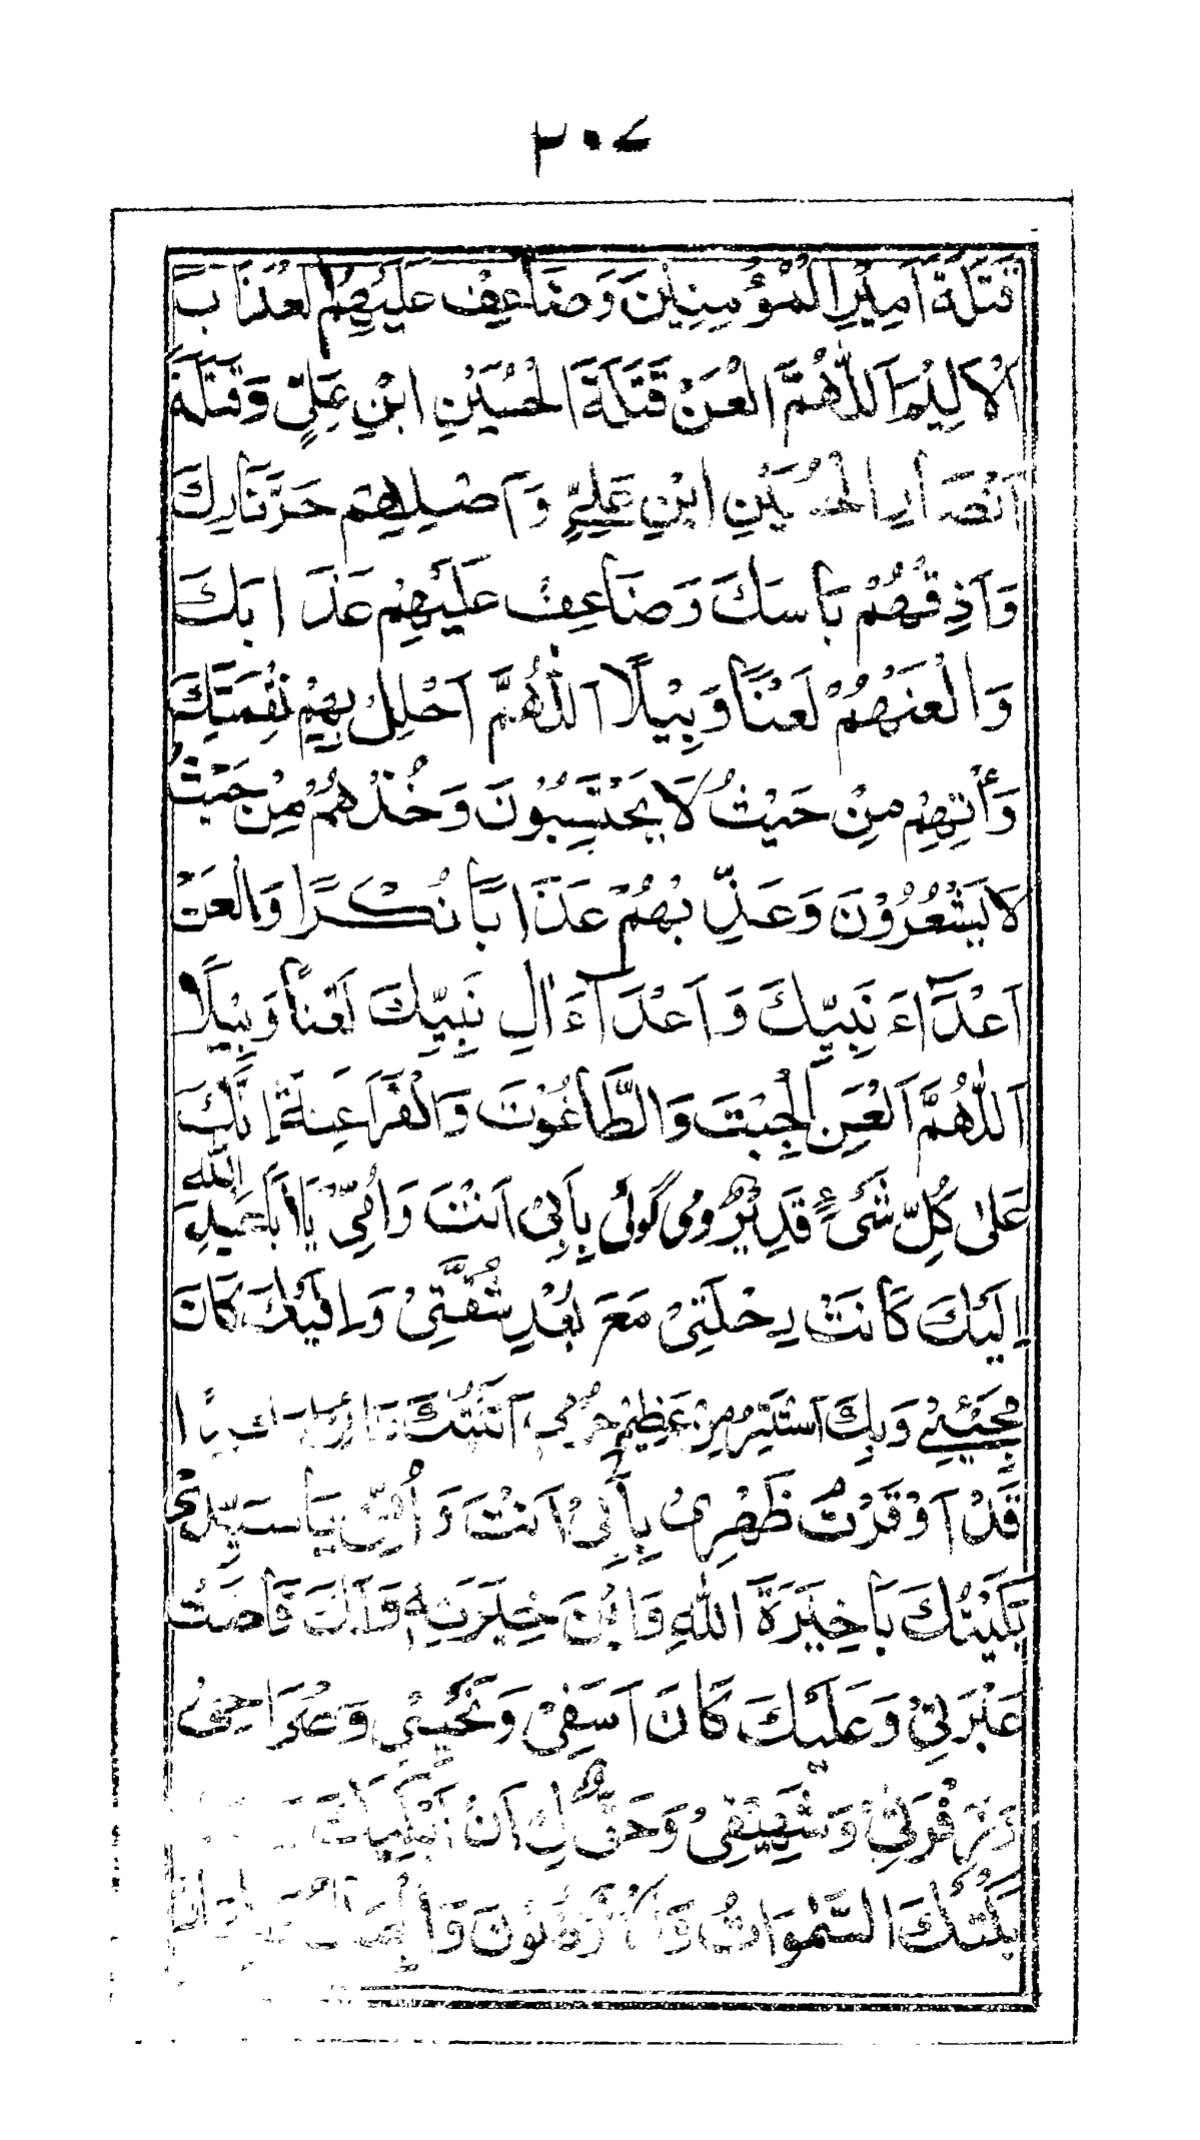 ٣٠٧
قَتَلَةَ اَمِيْرِ الْمُؤْمِنِيْنَ وَضَاعِفْ عَلَيْهِمُ الْعَذَابَ
الْاَلِيْمَ اَللّٰهُمَّ الْعَنْ قَتَلَةَ الْحُسَيْنِ ابْنِ عَلِيٍّ وَقَتَلَةَ
اَنْصَارِ الْحُسَيْنِ ابْنِ عَلِيٍّ وَاَصْلِهِمْ حَرَّنَارِكَ
وَاَذِقْهُمْ بَاْسَكَ وَضَاعِفْ عَلَيْهِمْ عَذَابَكَ
وَالْعَنْهُمْ لَعْنًا وَبِيْلًا اَللّٰهُمَّ اَحْلِلْ بِهِمْ نِقْمَتَكَ
وَأْتِهِمْ مِنْ حَيْثُ لَا يَحْتَسِبُوْنَ وَخُذْهُمْ مِنْ حَيْثُ
لَا يَشْعُرُوْنَ وَعَذِّبْهُمْ عَذَابًا نُكْرًا وَالْعَنْ
اَعْدَآءَ نَبِيِّكَ وَاَعْدَآءَ اٰلِ نَبِيِّكَ لَعْنًا وَبِيْلًا
اَللّٰهُمَّ الْعَنِ الْجِبْتَ وَالطَّاغُوْتَ وَالْفَرَاعِنَةَ اِنَّكَ
عَلٰى كُلِّ شَيْءٍ قَدِيْرٌ ومی گوئی بِاَبِيْ اَنْتَ وَاُمِّيْ يَا اَبَا عَبْدِ اللّٰهِ
اِلَيْكَ كَانَتْ رِحْلَتِيْ مَعَ بُعْدِ شُقَّتِيْ وَاِلَيْكَ كَانَ
مَجِيْئِيْ وَبِكَ اَسْتَتِرُ مِنْ عَظِيْمِ جُرْمِيْ اَتَيْتُكَ
قَدْ اَوْقَرْتُ ظَهْرِيْ بِاَبِيْ اَنْتَ وَاُمِّيْ يَا سَيِّدِيْ
بَكَيْتُكَ يَا خِيَرَةَ اللّٰهِ وَابْنَ خِيَرَتِهٖ وَلَكَ فَاضَتْ
عَبْرَتِيْ وَعَلَيْكَ كَانَ اَسَفِيْ وَنَحِيْبِيْ وَصُرَاخِيْ
وَزَفْرَتِيْ وَشَهِيْقِيْ وَحَقٌّ لِيْ اَنْ اَبْكِيَكَ
بَكَتْكَ السَّمٰوَاتُ وَالْاَرْضُوْنَ وَالْجِبَالُ